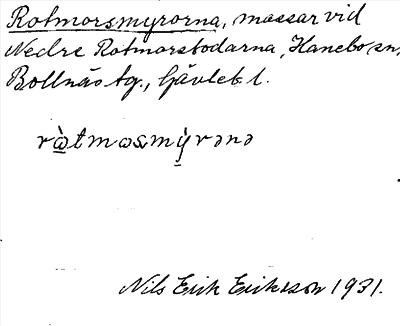 Rotmorsmyrorna, mossar vid
Nedre Rotmorsbodarna, Hanebo sn,
Bollnäs tg., Gävleb. l.
rɷ̀tmɷsmỳrənə
Nils Erik Eriksson 1931.